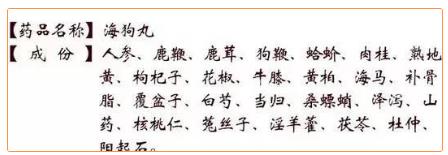 【药品名称】海狗丸
【成份】人参、鹿鞭、鹿茸、狗鞭、蛤蚧、肉桂、熟地
黄、枸杞子、花椒、牛膝、黄柏、海马、补骨
脂、覆盆子、白芍、当归、桑螵蛸、泽泻、山
药、核桃仁、菟丝子、淫羊藿、茯苓、杜仲、
阳起石。